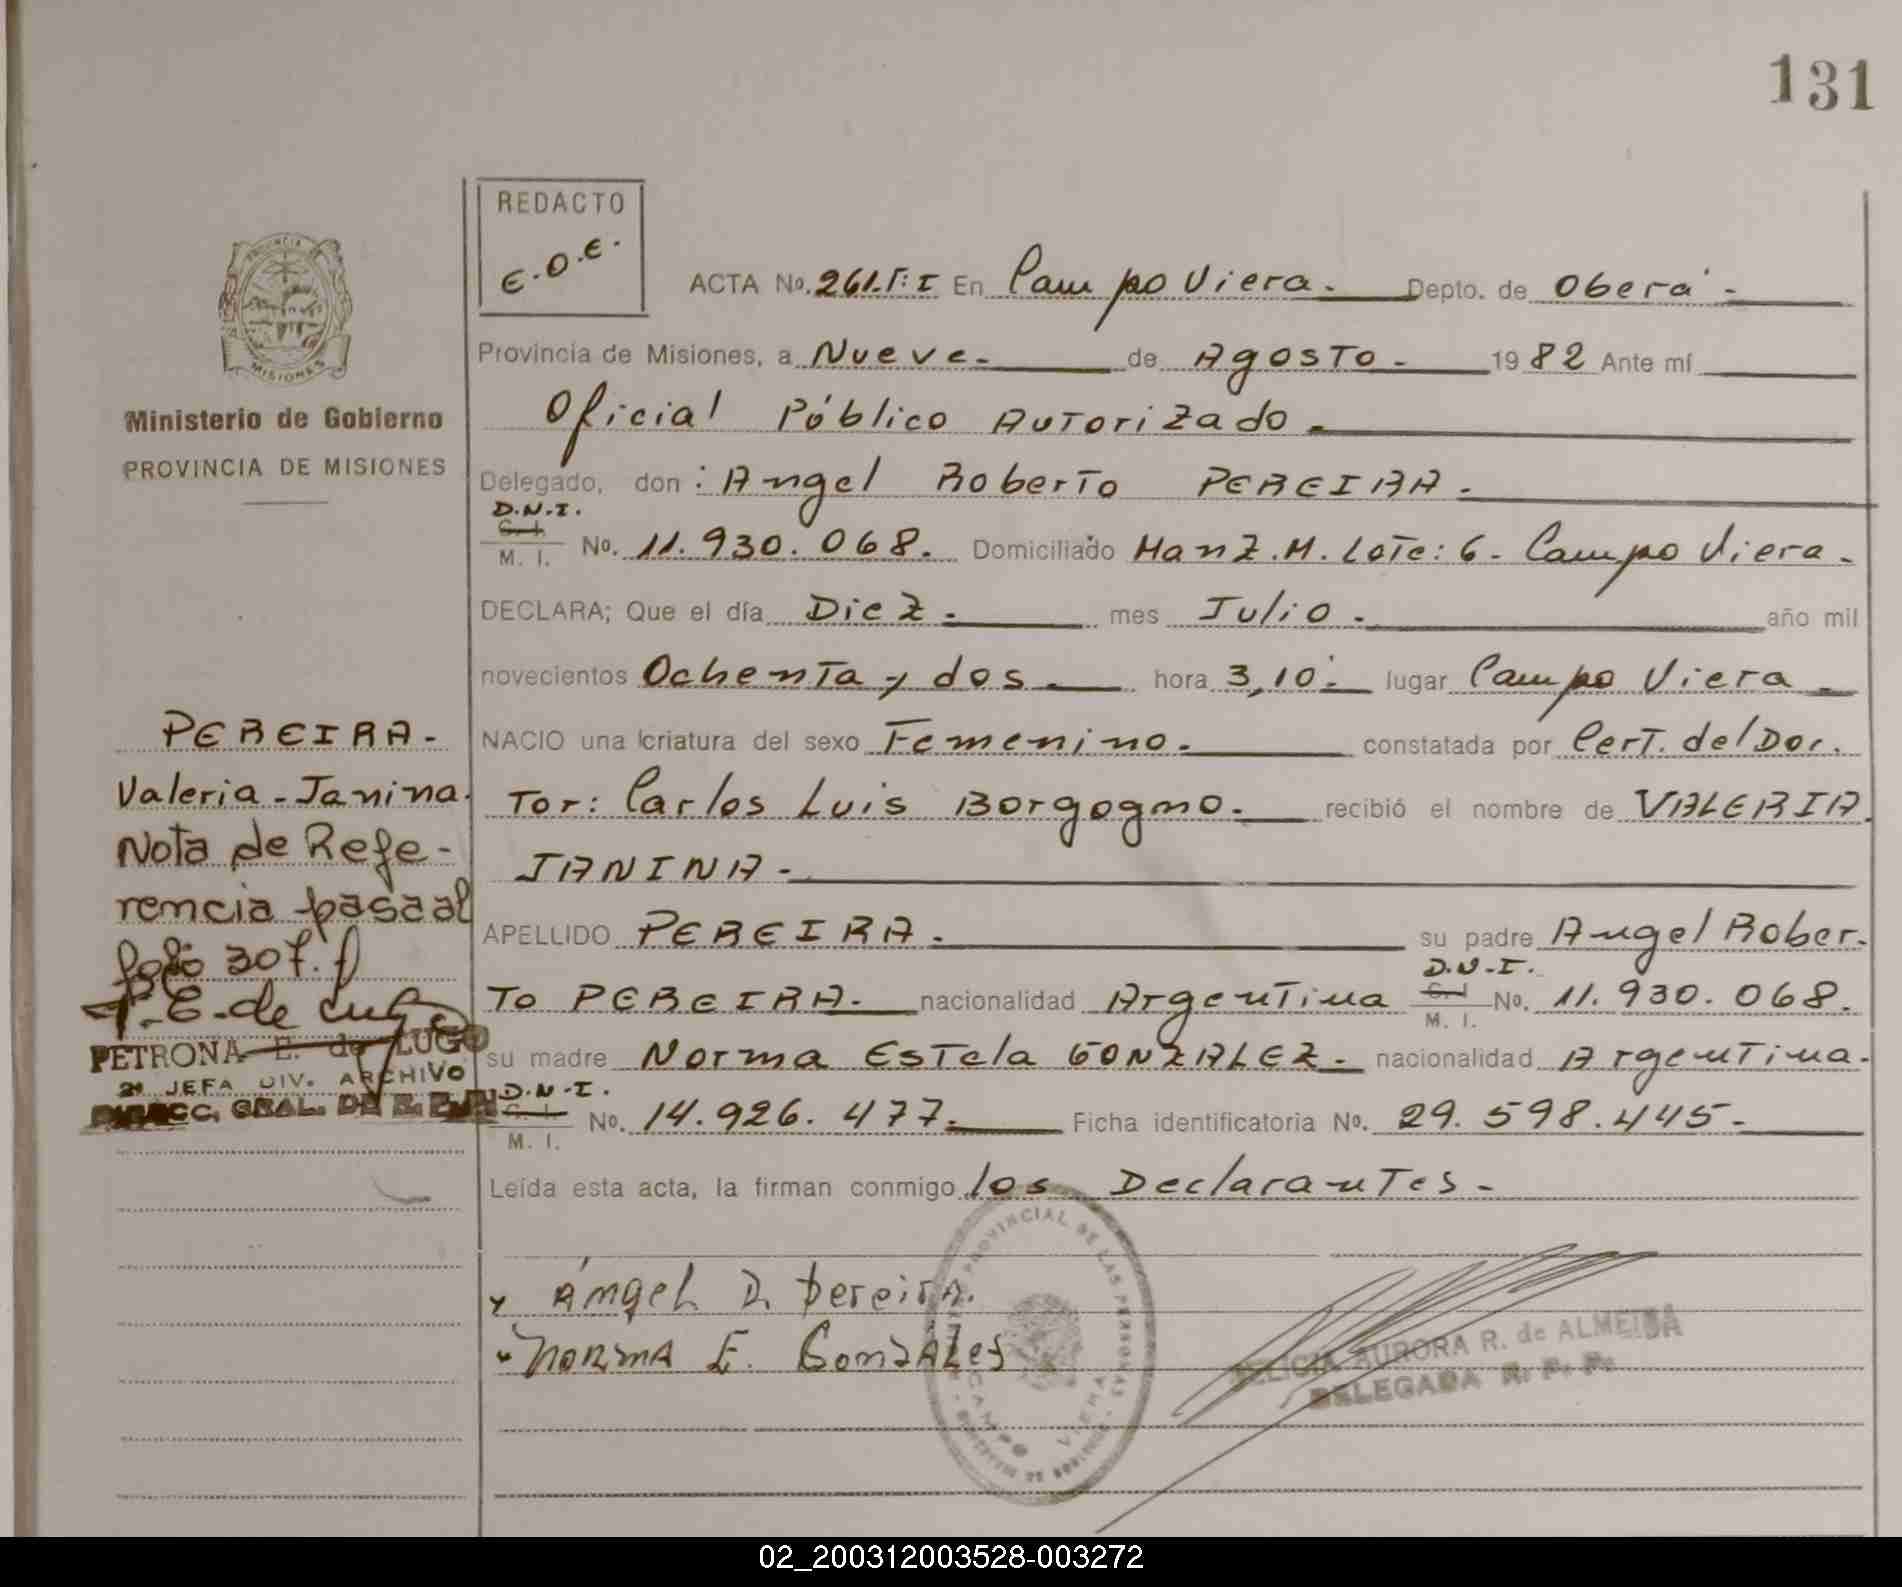 131
REDACTO
E.O.E.
ACTA No. 261.T:I En Campo Viera.- Depto. de Oberá.-
Provincia de Misiones, a Nueve.- de Agosto.- 1982 Ante mí
Oficial Público Autorizado.-
Delegado, don: Angel Roberto PEREIRA.-
D.N.I.
C. I.
M. I. No. 11.930.068. Domiciliado Manz.M. Lote: 6.- Campo Viera.-
DECLARA; Que el día Diez.- mes Julio.- año mil
novecientos Ochenta y dos.- hora 3,10:- lugar Campo Viera.-
NACIO una criatura del sexo Femenino.- constatada por Cert. del Doc.
Tor: Carlos Luis Borgogno.- recibió el nombre de VALERIA
JANINA.-
APELLIDO PEREIRA.- su padre Angel Rober.
To PEREIRA.- nacionalidad Argentina D.N.I. C. I. M. I. No. 11.930.068.
su madre Norma Estela GONZALEZ.- nacionalidad Argentina.-
D.N.I.
C. I.
M. I. No. 14.926.477.- Ficha identificatoria No. 29.598.445.-
Leída esta acta, la firman conmigo los Declarantes.-
Ángel R. Pereira.
Norma E. Gonzáles
PROVINCIAL DE LAS PERSONAS
CAMPO VIERA
FELICIA AURORA R. de ALMEIDA
DELEGADA R. P. P.
PROVINCIA DE
MISIONES
Ministerio de Gobierno
PROVINCIA DE MISIONES
PEREIRA.-
Valeria-Janina.
Nota de Refe-
rencia pasa al
folio 307.f
P.E. de Lugo
PETRONA E. de LUGO
2ª JEFA DIV. ARCHIVO
DIRECC. GRAL. DE R. P. P.
02_200312003528-003272